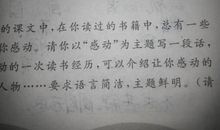 的课文中,在你读过的书籍中,总有一些
你感动。请你以“感动”为主题写一段话,
动的一次读书经历,可以介绍让你感动的
人物……要求语言简洁,主题鲜明。(请